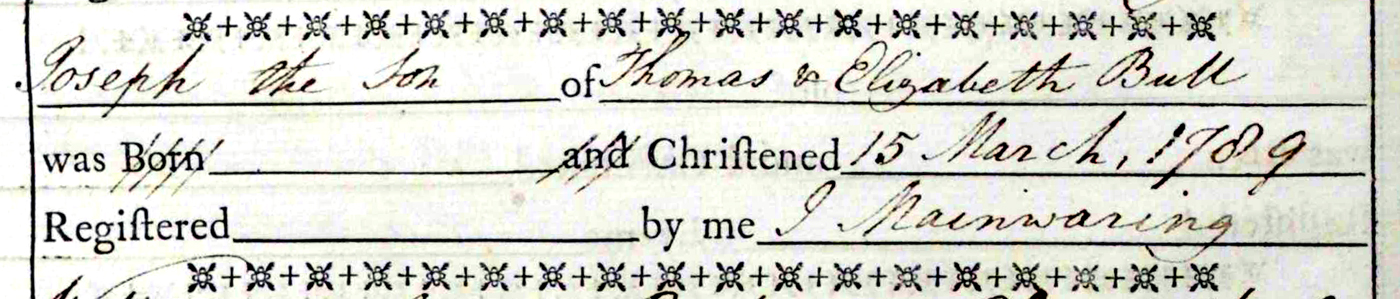 Joseph the Son of Thomas & Elizabeth Bull
was Born and Chriſtened 15 March, 1789
Regiſtered by me J Mainwaring